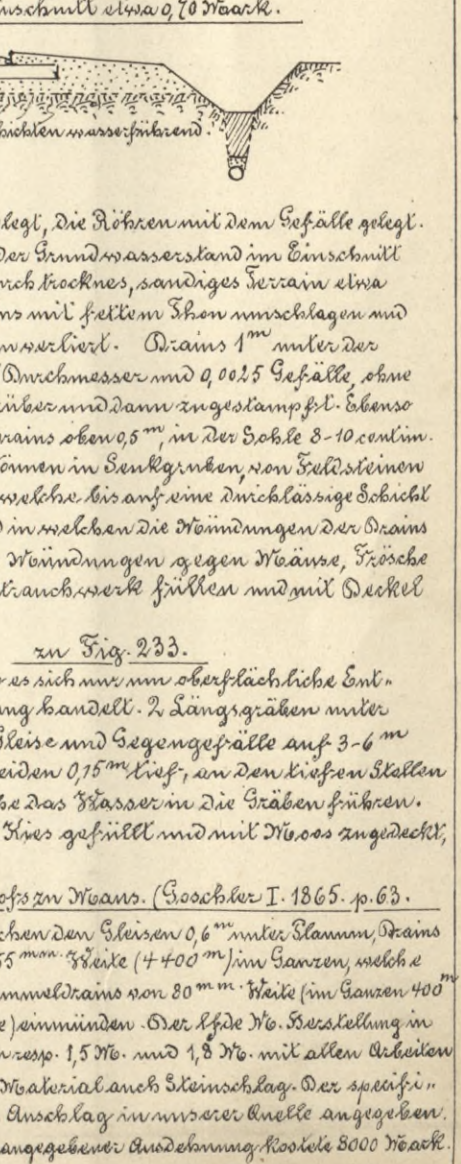 nschnitt etwa 0,70 Mark.
hichten wasserführend.
legt, die Röhren mit dem Gefälle gelegt.
der Grundwasserstand im Einschnitt
rch trocknes, sandiges Terrain etwa
ns mit fettem Thon umschlagen und
n verliert. Drains 1m unter der
Durchmesser und 0,0025 Gefälle, ohne
rüber und dann zugestampft. Ebenso
rains oben 0,5m, in der Sohle 8-10 centim.
önnen in Senkgruben, von Feldsteinen
welche bis auf eine durchlässige Schicht
d in welchen die Mündungen der Drains
Mündungen gegen Mäuse, Frösche
trauchwerk füllen und mit Deckel
zu Fig. 233.
es sich nur um oberflächliche Ent-
ng handelt. 2 Längsgräben unter
Gleise und Gegengefälle auf 3-6m
eiden 0,15m tief, an den tiefen Stellen
he das Wasser in die Gräben führen.
Kies gefüllt und mit Moos zugedeckt,
ofs zu Mans. (Goschler I. 1865. p. 63.
chen den Gleisen 0,6m unter Planum, Drains
55mm. Weite (4400m) im Ganzen, welche
mmeldrains von 80mm. Weite (im Ganzen 400m
e) einmünden. Der lfde M. Herstellung in
n resp. 1,5 M. und 1,8 M. mit allen Arbeiten
Material auch Steinschlag. Der specifi-
Anschlag in unserer Quelle angegeben.
angegebener Ausdehnung kostete 8000 Mark.